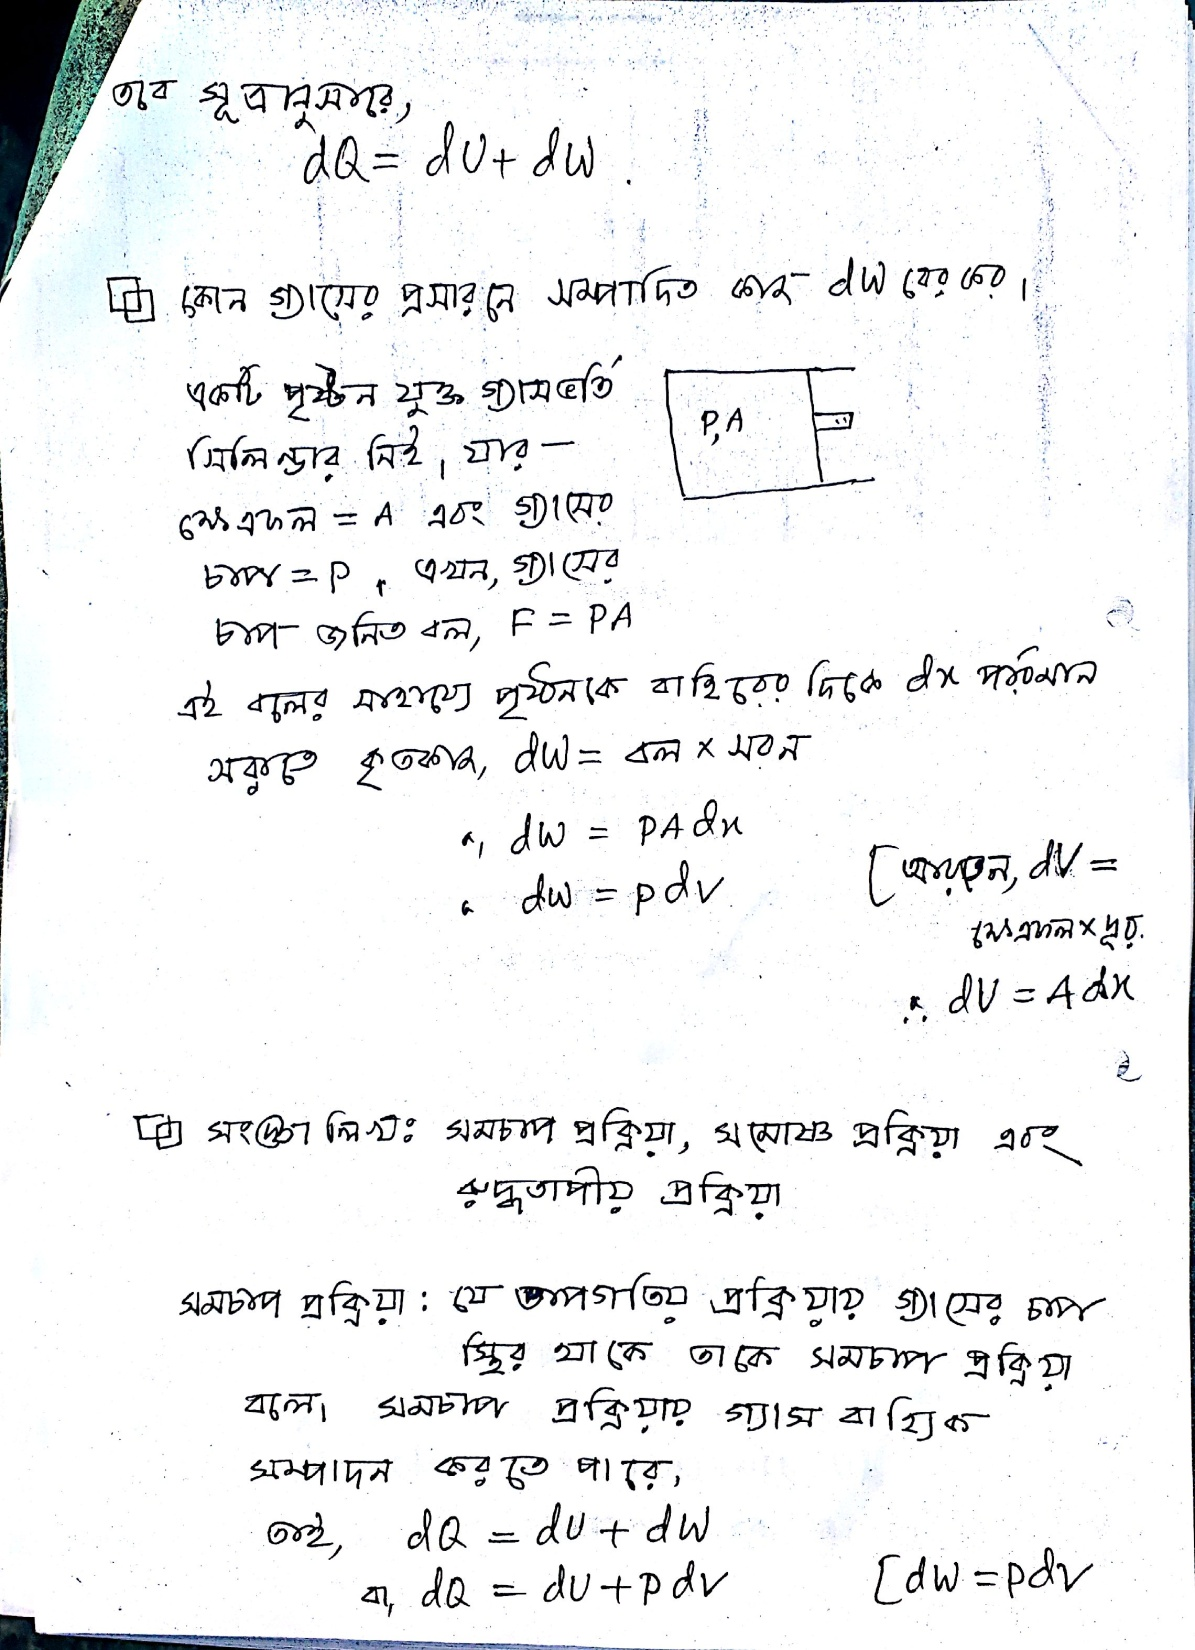 তবে সূত্রানুসারে,
dQ = dU + dW.
কোন গ্যাসের প্রসারনে সম্পাদিত কাজ dW বের কর।
একটি পৃষ্টন যুক্ত গ্যাসভর্তি
সিলিন্ডার নিই, যার —
ক্ষেত্রফল = A এবং গ্যাসের
চাপ = P, এখন, গ্যাসের
চাপ জনিত বল, F = PA
P, A
এই বলের সাহায্যে পৃষ্ঠনকে বাহিরের দিকে dx পরিমান
সরুতে কৃতকাজ, dW = বল × সরন
বা, dW = PAdx
dW = pdv
[আয়তন, dV =
ক্ষেত্রফল × দূর.
∴ dV = Adx
সংজ্ঞা লিখ: সমচাপ প্রক্রিয়া, সমোষ্ণ প্রক্রিয়া এবং
রুদ্ধতাপীয় প্রক্রিয়া
সমচাপ প্রক্রিয়া: যে তাপগতিয় প্রক্রিয়ায় গ্যাসের চাপ
স্থির থাকে তাকে সমচাপ প্রক্রিয়া
বলে। সমচাপ প্রক্রিয়ায় গ্যাস বাহ্যিক
সম্পাদন করতে পারে,
তাই, dQ = dU + dW
বা, dQ = dU + pdv [dW = pdv